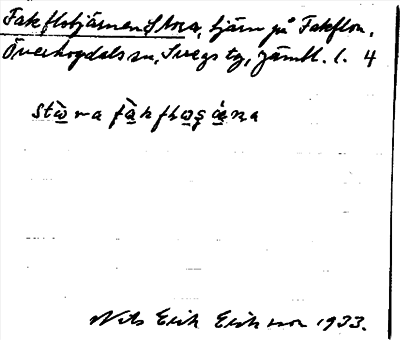 Fakflotjärnen Stora, tjärn på Fakflon,
Överhogdals sn, Svegs tg, Jämtl. l. 4
stὼ̱ra fà̱kflω̱ʂá̱na
Nils Erik Eriksson 1933.